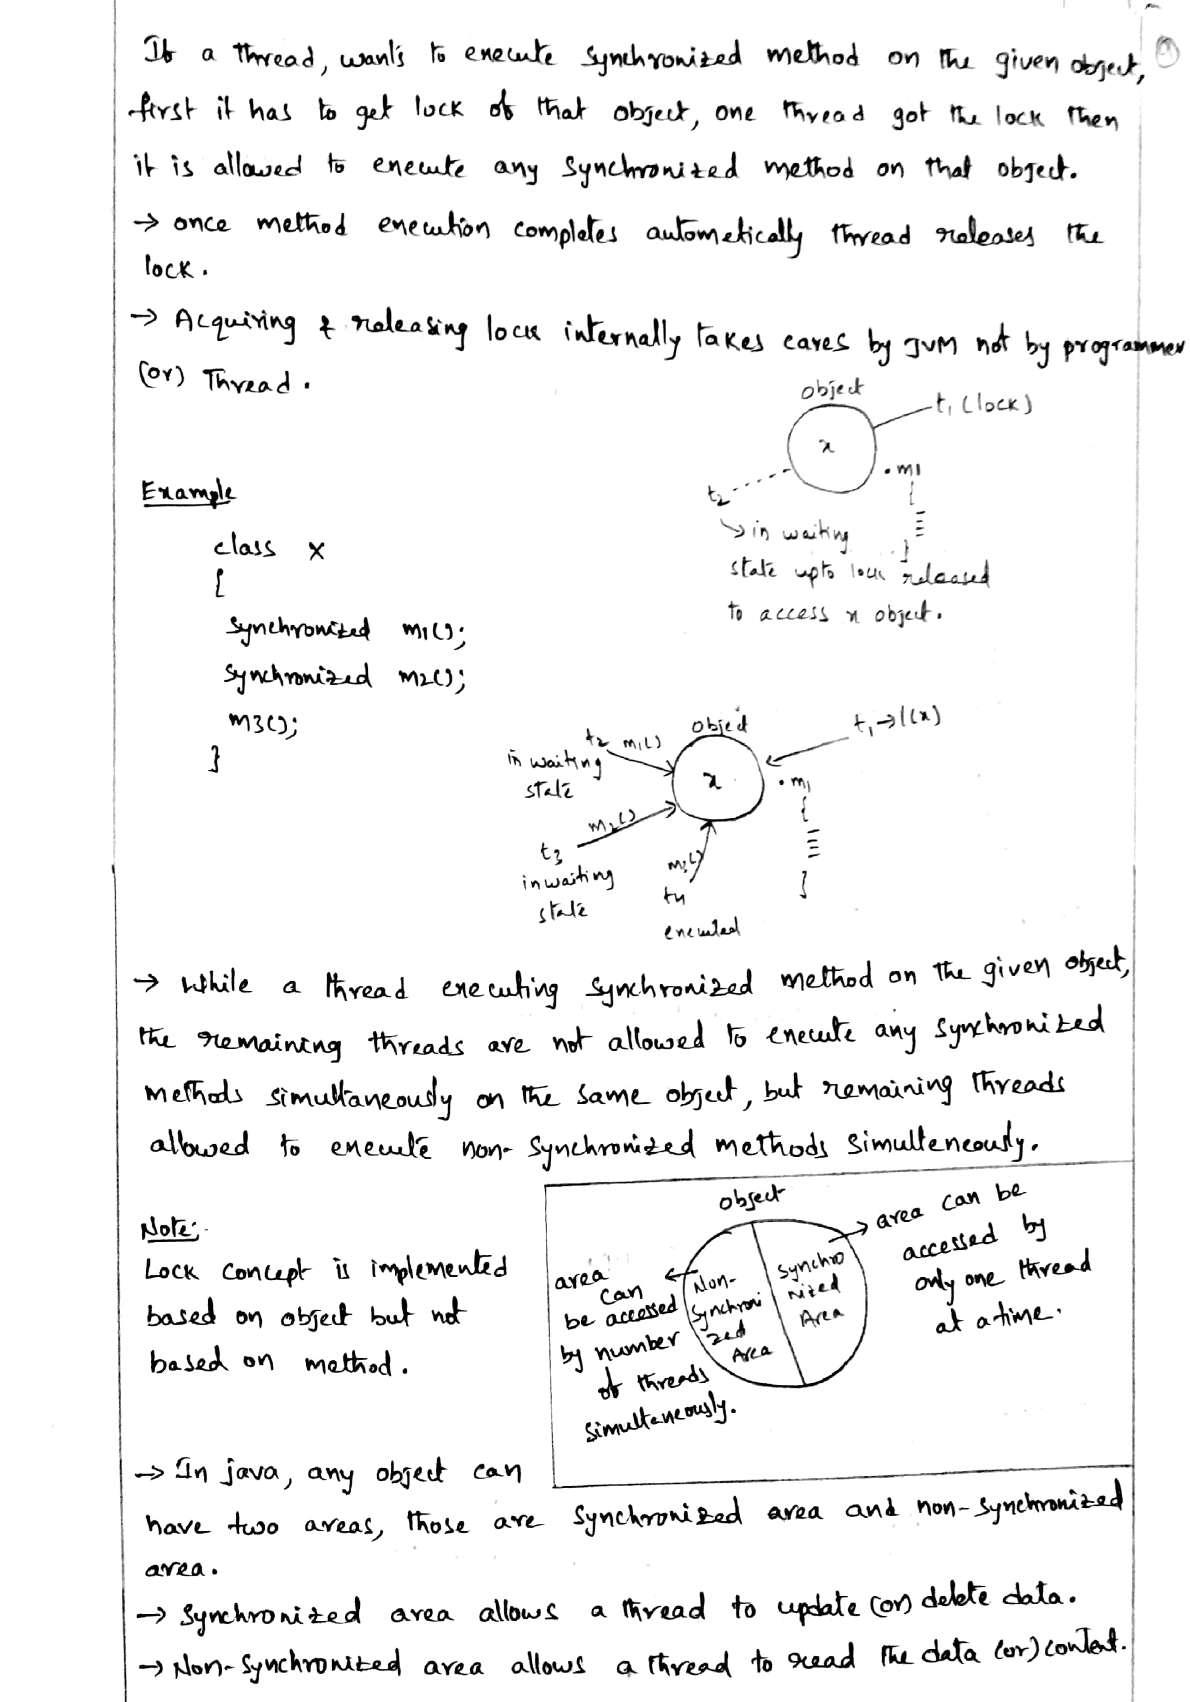 If a thread, wants to execute synchronized method on the given object,
first it has to get lock of that object, one thread got the lock then
it is allowed to execute any synchronized method on that object.
→ once method execution completes autometically thread releases the
lock.
→ Acquiring & releasing lock internally takes cares by JVM not by programmer
(or) Thread.
object
t1 (lock)
x
.m1
{
}
t2
→ in waiting
state upto lock released
to access x object.
Example
class X
{
synchronized m1();
synchronized m2();
m3();
}
object
t1→l(x)
t2 m1()
in waiting
state
x
.m1
{
}
m2()
t3
in waiting
state
m3()
t4
executed
→ While a thread executing synchronized method on the given object,
the remaining threads are not allowed to execute any synchronized
methods simultaneously on the same object, but remaining threads
allowed to execute non-synchronized methods simulteneously.
Note:-
Lock concept is implemented
based on object but not
based on method.
object
area
can
be accessed
by number
of threads
simultaneously.
Non-
synchroni
zed
Area
synchro
nized
Area
area can be
accessed by
only one thread
at a time.
→ In java, any object can
have two areas, those are synchronized area and non-synchronized
area.
→ Synchronized area allows a thread to update (or) delete data.
→ Non-Synchronized area allows a thread to read the data (or) content.